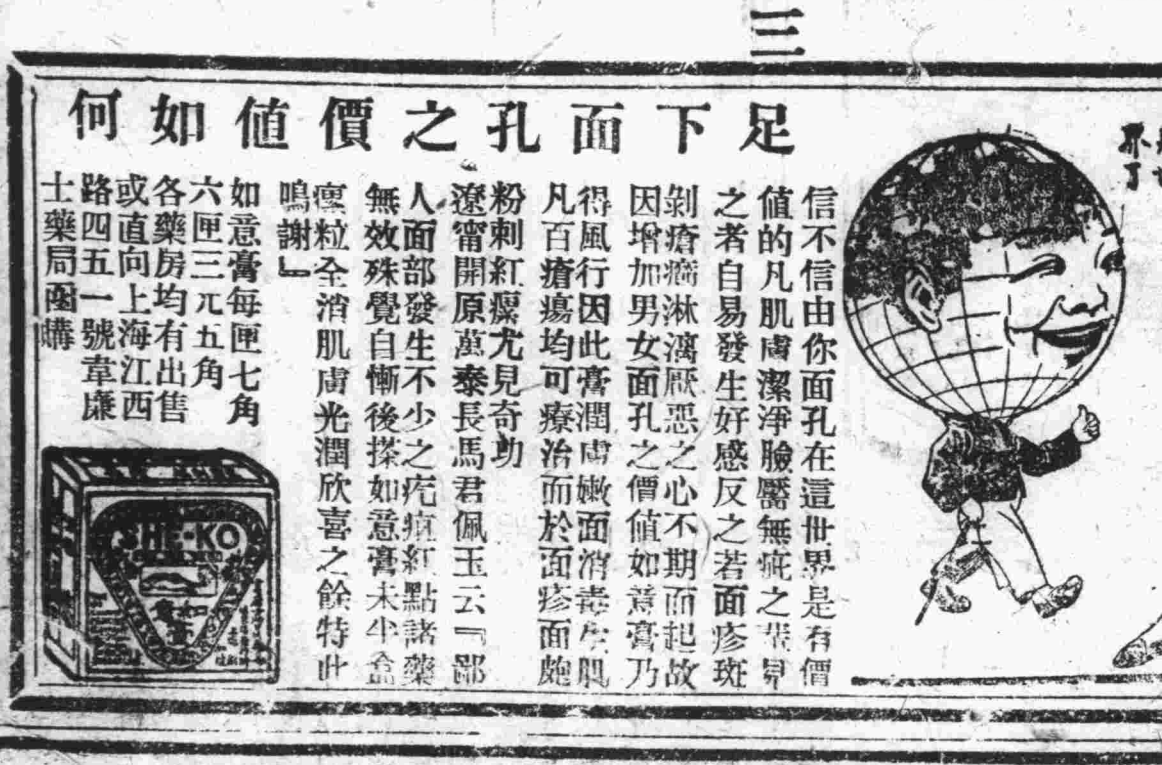 三
足下面孔之價値如何
信不信由你面孔在這世界是有價
値的凡肌膚潔淨臉靨無疵之輩見
之者自易發生好感反之若面疹斑
剝瘡癤淋漓厭惡之心不期而起故
因增加男女面孔之價値如意膏乃
得風行因此膏潤膚嫩面消毒生肌
凡百瘡瘍均可療治而於面疹面皰
粉刺紅瘰尤見奇功
遼甯開原萬泰長馬君佩玉云『鄙
人面部發生不少之疙疸紅點諸藥
無效殊覺自慚後搽如意膏未半盒
瘰粒全消肌膚光潤欣喜之餘特此
鳴謝』
如意膏每匣七角
六匣三元五角
各藥房均有出售
或直向上海江西
路四五一號韋廉
士藥局函購
SHE-KO
如意膏
不了